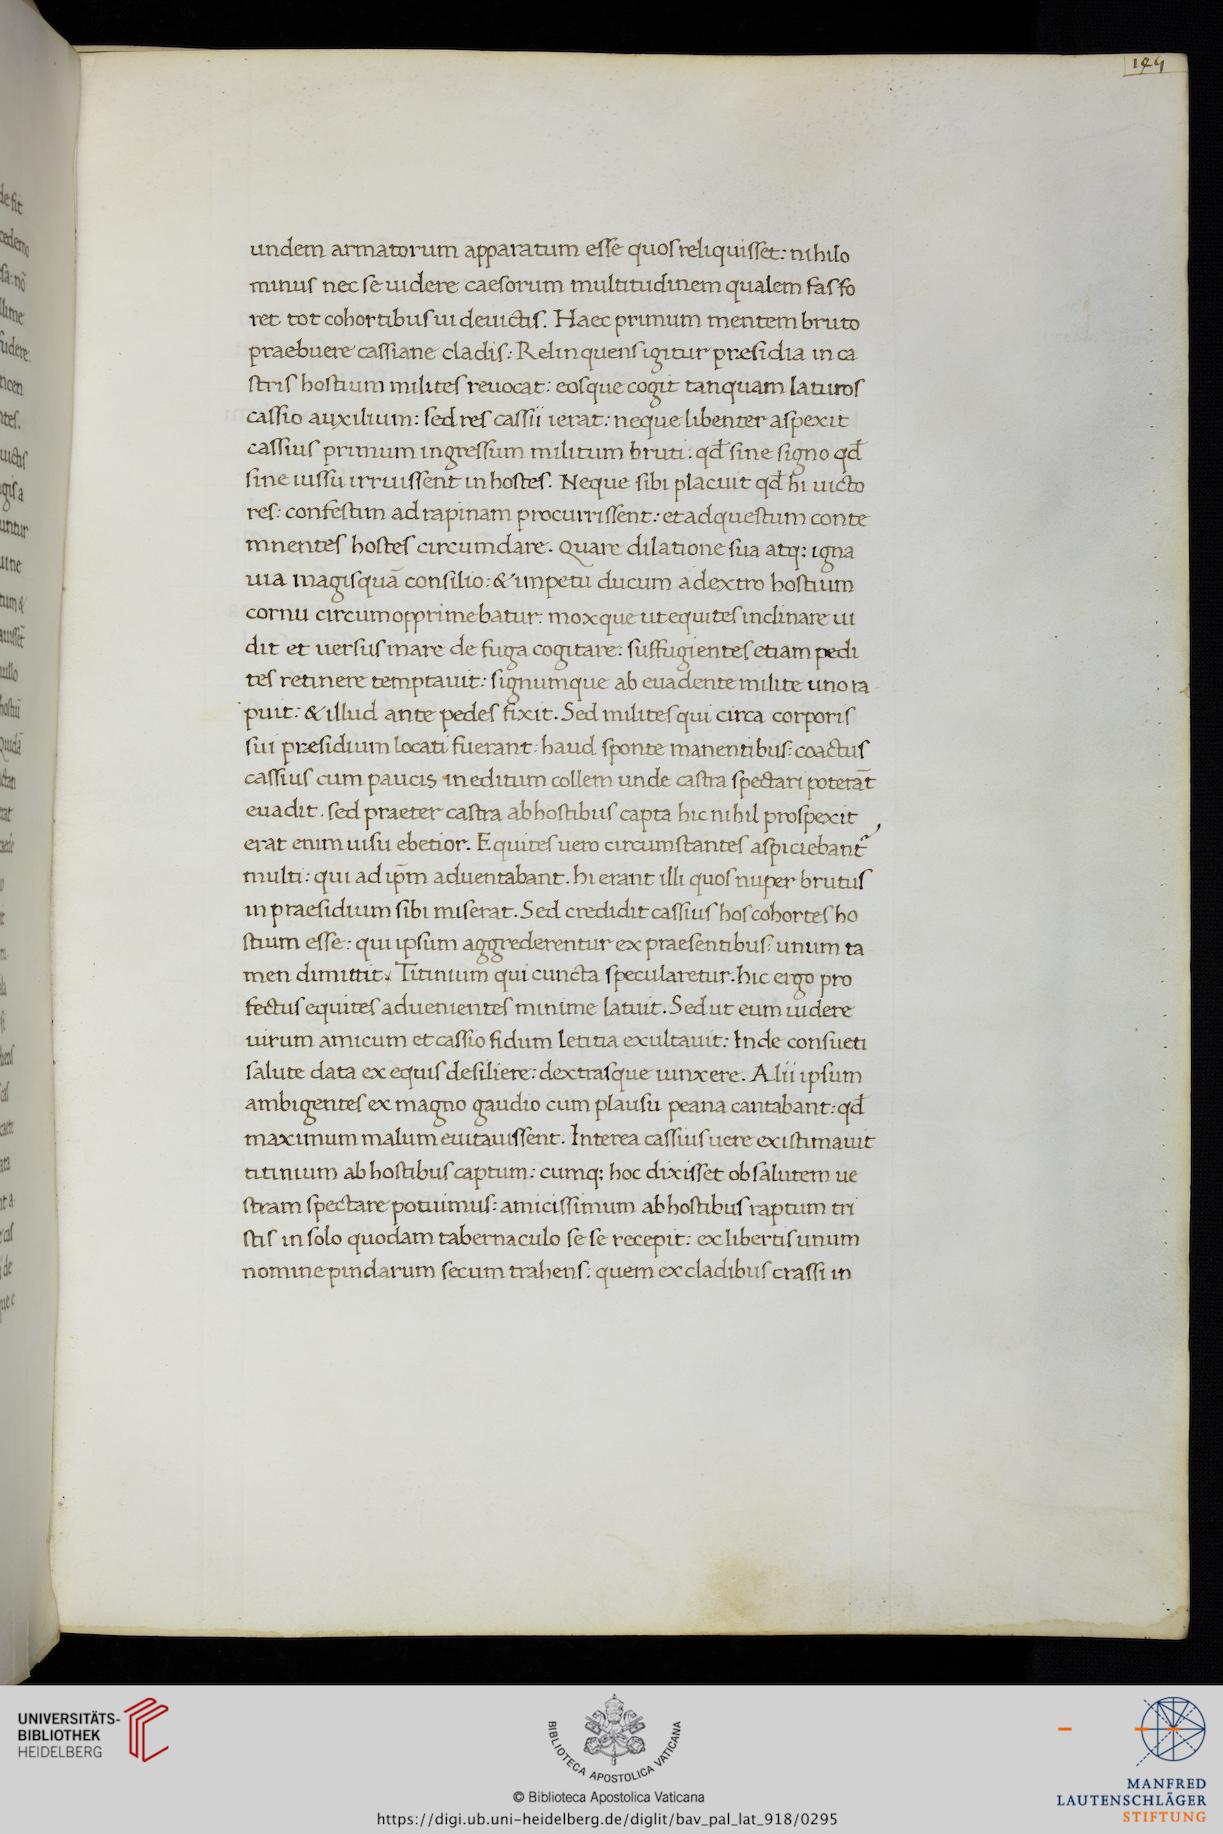 144
undem armatorum apparatum esse quos reliquisset: nihilo
minus nec se uidere caesorum multitudinem qualem fas fo
ret tot cohortibus ui deuictis. Haec primum mentem bruto
praebuere cassiane cladis: Relinquens igitur præsidia in ca
stris hostium milites reuocat: eosque cogit tanquam laturos
cassio auxilium: sed res cassii ierat: neque libenter aspexit
cassius primum ingressum militum bruti: qđ sine signo qđ
sine iussu irruissent in hostes. Neque sibi placuit qđ hi uicto
res: confestim ad rapinam procurrissent: et ad questum conte
mnentes hostes circumdare. Quare dilatione sua atq; igna
uia magis quā consilio: & impetu ducum a dextro hostium
cornu circumopprimebatur: mox que ut equites inclinare ui
dit et uersus mare de fuga cogitare: suffugientes etiam pedi
tes retinere temptauit: signumque ab euadente milite uno ra
puit: & illud ante pedes fixit. Sed milites qui circa corporis
sui præsidium locati fuerant: haud sponte manentibus: coactus
cassius cum paucis in editum collem unde castra spectari poterāt
euadit. sed praeter castra ab hostibus capta hic nihil prospexit
erat enim uisu ebetior. Equites uero circumstantes aspiciebant᷑
multi: qui ad ip̄m aduentabant. hi erant illi quos nuper brutus
in praesidium sibi miserat. Sed credidit cassius hos cohortes ho
stium esse: qui ipsum aggrederentur ex praesentibus: unum ta
men dimittit. Titinium qui cuncta specularetur. hic ergo pro
fectus equites aduenientes minime latuit. Sed ut eum uidere
uirum amicum et cassio fidum letitia exultauit: Inde consueti
salute data ex equis desiliere: dextrasque iunxere. Alii ipsum
ambigentes ex magno gaudio cum plausu peana cantabant: qđ
maximum malum euitauissent. Interea cassius uere existimauit
titinium ab hostibus captum: cumq; hoc dixisset ob salutem ue
stram spectare potuimus: amicissimum ab hostibus raptum tri
stis in solo quodam tabernaculo se se recepit: ex libertis unum
nomine pindarum secum trahens: quem ex cladibus crassi in
UNIVERSITÄTS-
BIBLIOTHEK
HEIDELBERG
BIBLIOTECA APOSTOLICA VATICANA
© Biblioteca Apostolica Vaticana
https://digi.ub.uni-heidelberg.de/diglit/bav_pal_lat_918/0295
MANFRED
LAUTENSCHLÄGER
STIFTUNG